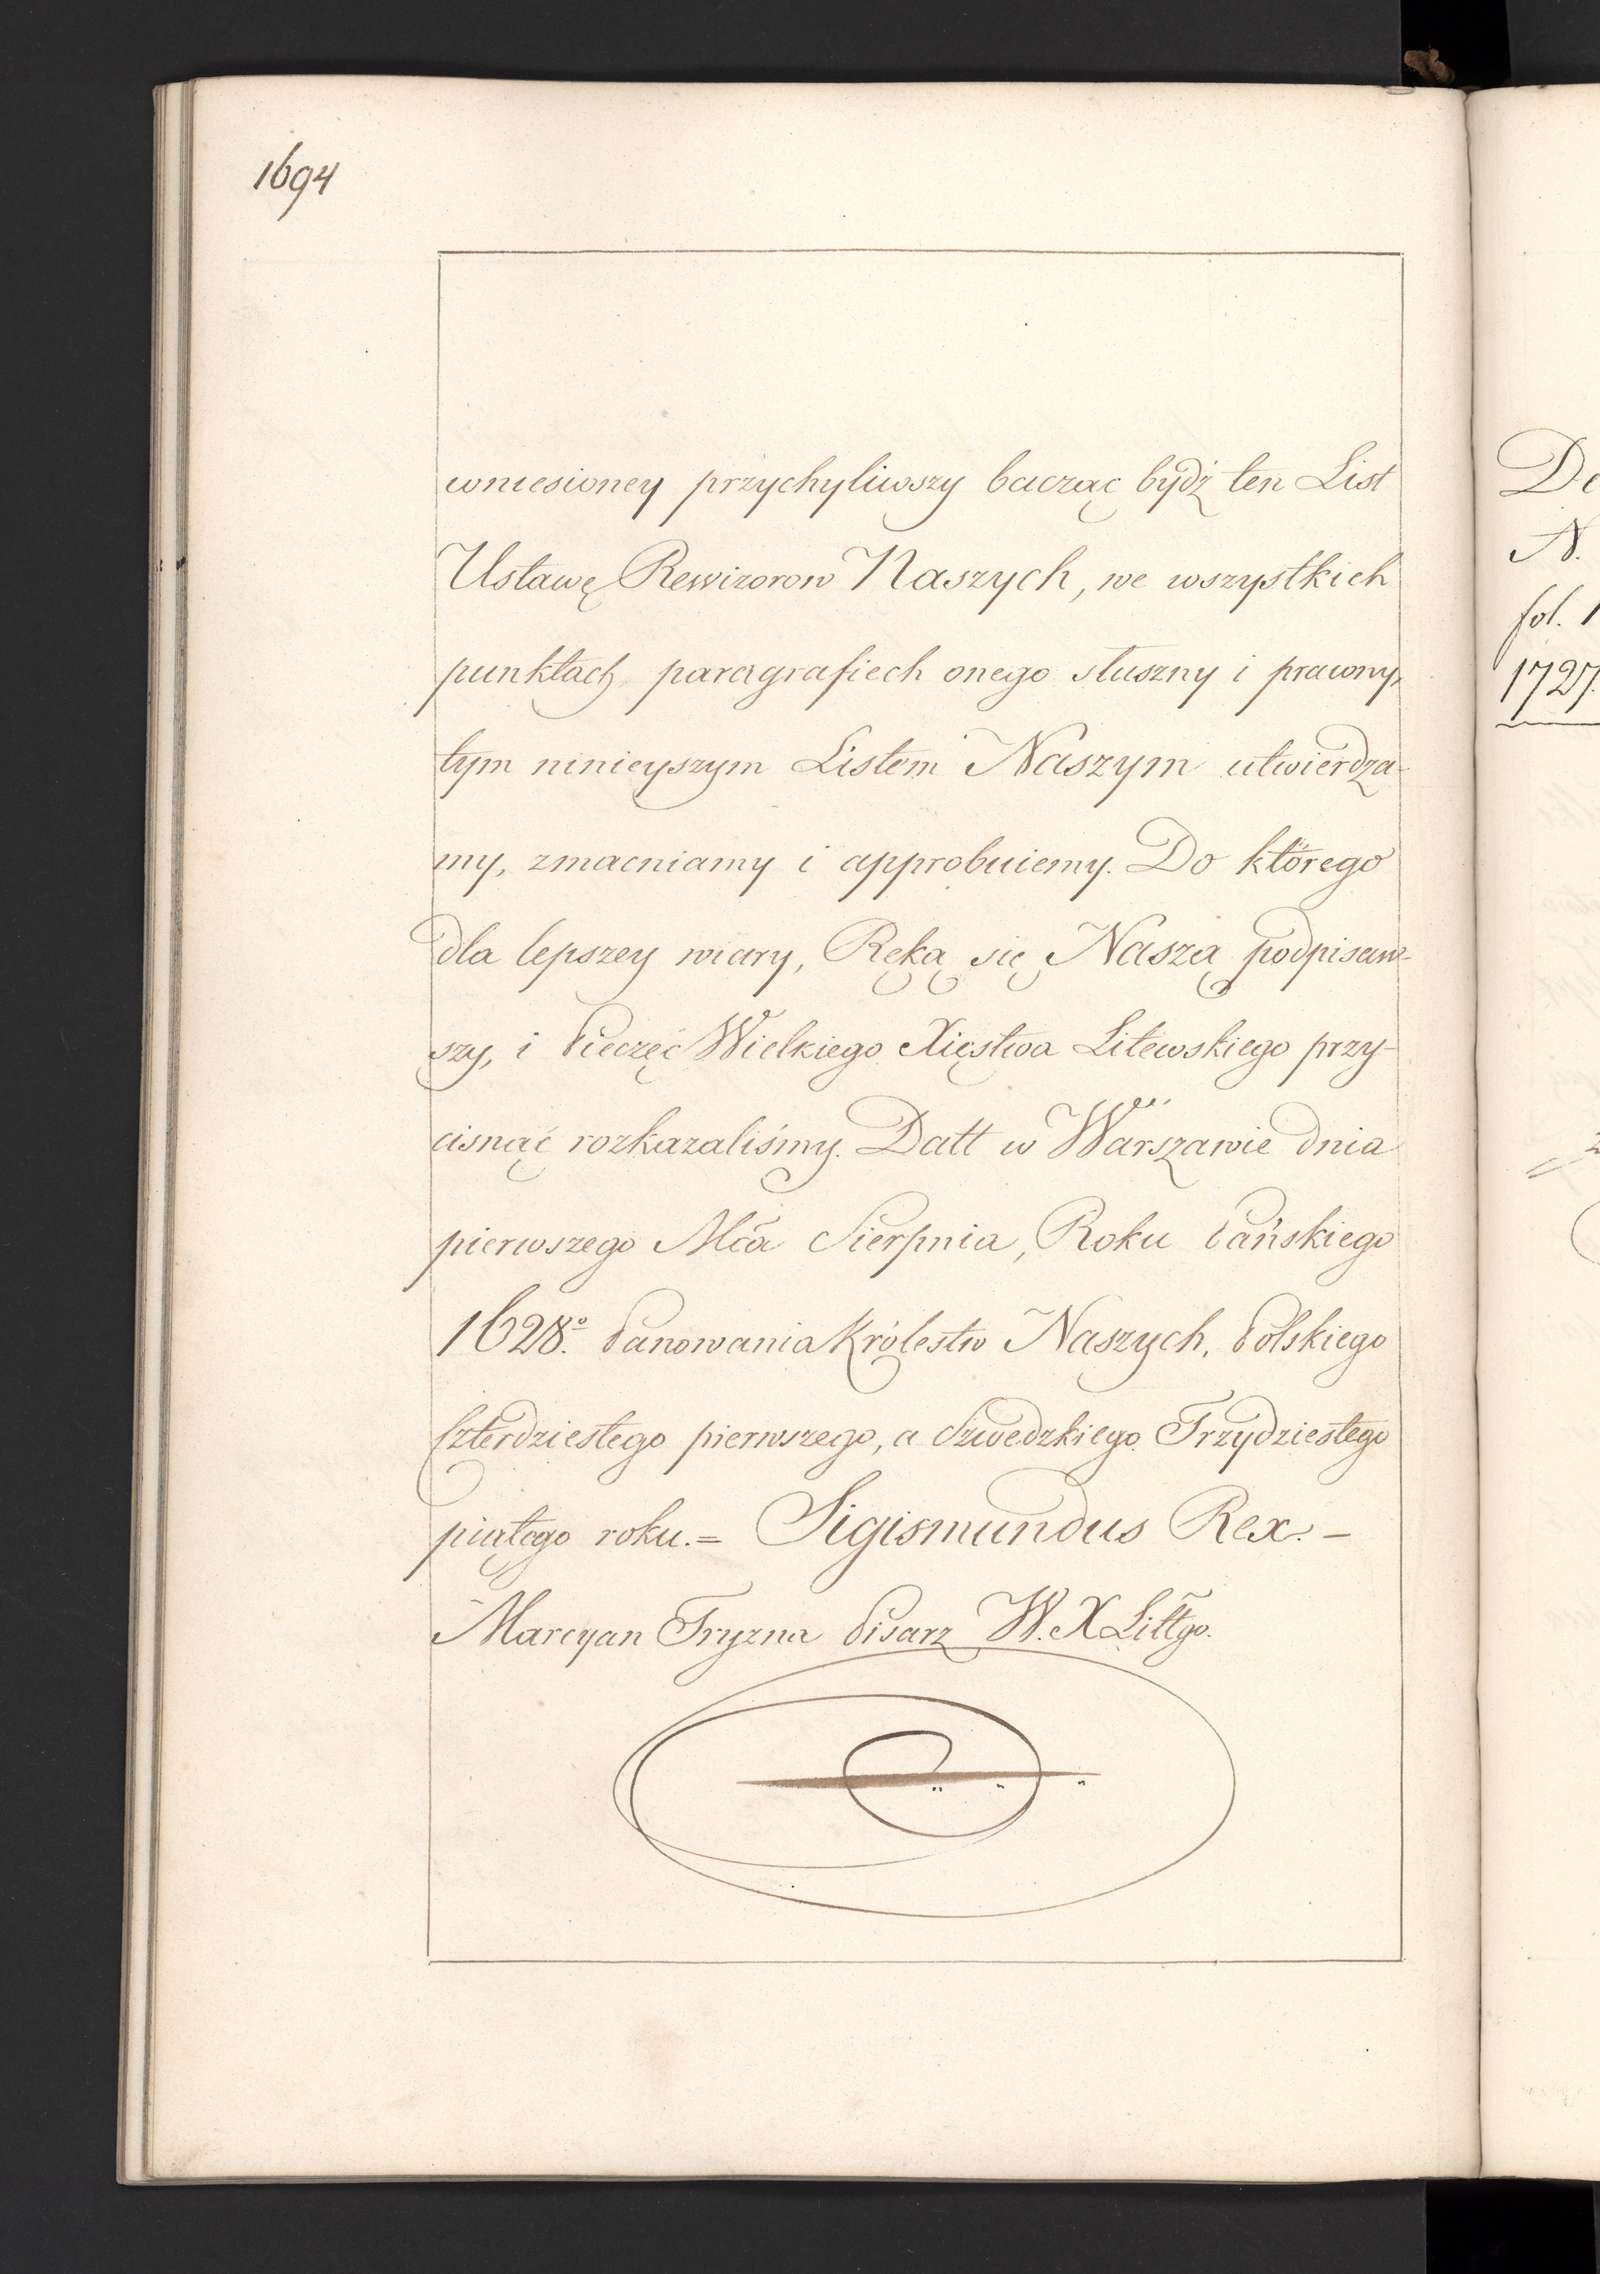 1694
wniesioney przychyliwszy bacząc bydź ten List
Ustawę Rewizorow Naszych, we wszystkich
punktach paragrafiech onego słuszny i prawny,
tym ninieyszym Listem Naszym utwierdza-
my, zmacniamy i approbuiemy. Do którego
dla lepszey wiary, Ręką się Naszą podpisaw-
szy, i Pieczęć Wielkiego Xięstwa Litewskiego przy-
cisnąć rozkazaliśmy. Datt w Warszawie dnia
pierwszego Mca Sierpnia, Roku Pańskiego
1628.º Panowania Królestw Naszych, Polskiego
Czterdziestego pierwszego, a Szwedzkiego Trzydziestego
piątego roku.= Sigismundus Rex.–
Marcyan Tryzna Pisarz W. X Littgo.
De
N.
fol. 1
1727.